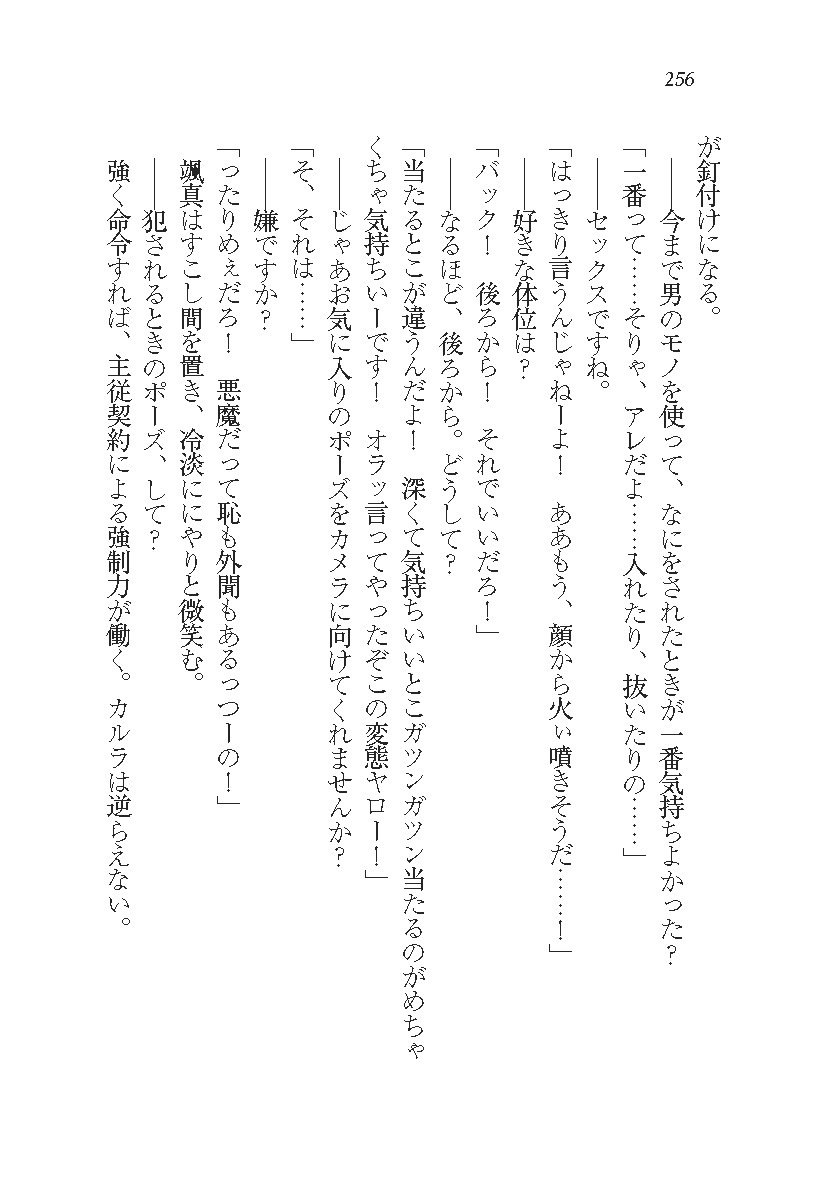 256
が釘付けになる。
――今まで男のモノを使って、なにをされたときが一番気持ちよかった？
「一番って……そりゃ、アレだよ……入れたり、抜いたりの……」
――セックスですね。
「はっきり言うんじゃねーよ！　ああもう、顔から火ぃ噴きそうだ……！」
――好きな体位は？
「バック！　後ろから！　それでいいだろ！」
――なるほど、後ろから。どうして？
「当たるとこが違うんだよ！　深くて気持ちいいとこガツンガツン当たるのがめちゃ
くちゃ気持ちいーです！　オラッ言ってやったぞこの変態ヤロー！」
――じゃあお気に入りのポーズをカメラに向けてくれませんか？
「そ、それは……」
――嫌ですか？
「ったりめぇだろ！　悪魔だって恥も外聞もあるっつーの！」
颯真はすこし間を置き、冷淡ににやりと微笑む。
――犯されるときのポーズ、して？
強く命令すれば、主従契約による強制力が働く。カルラは逆らえない。